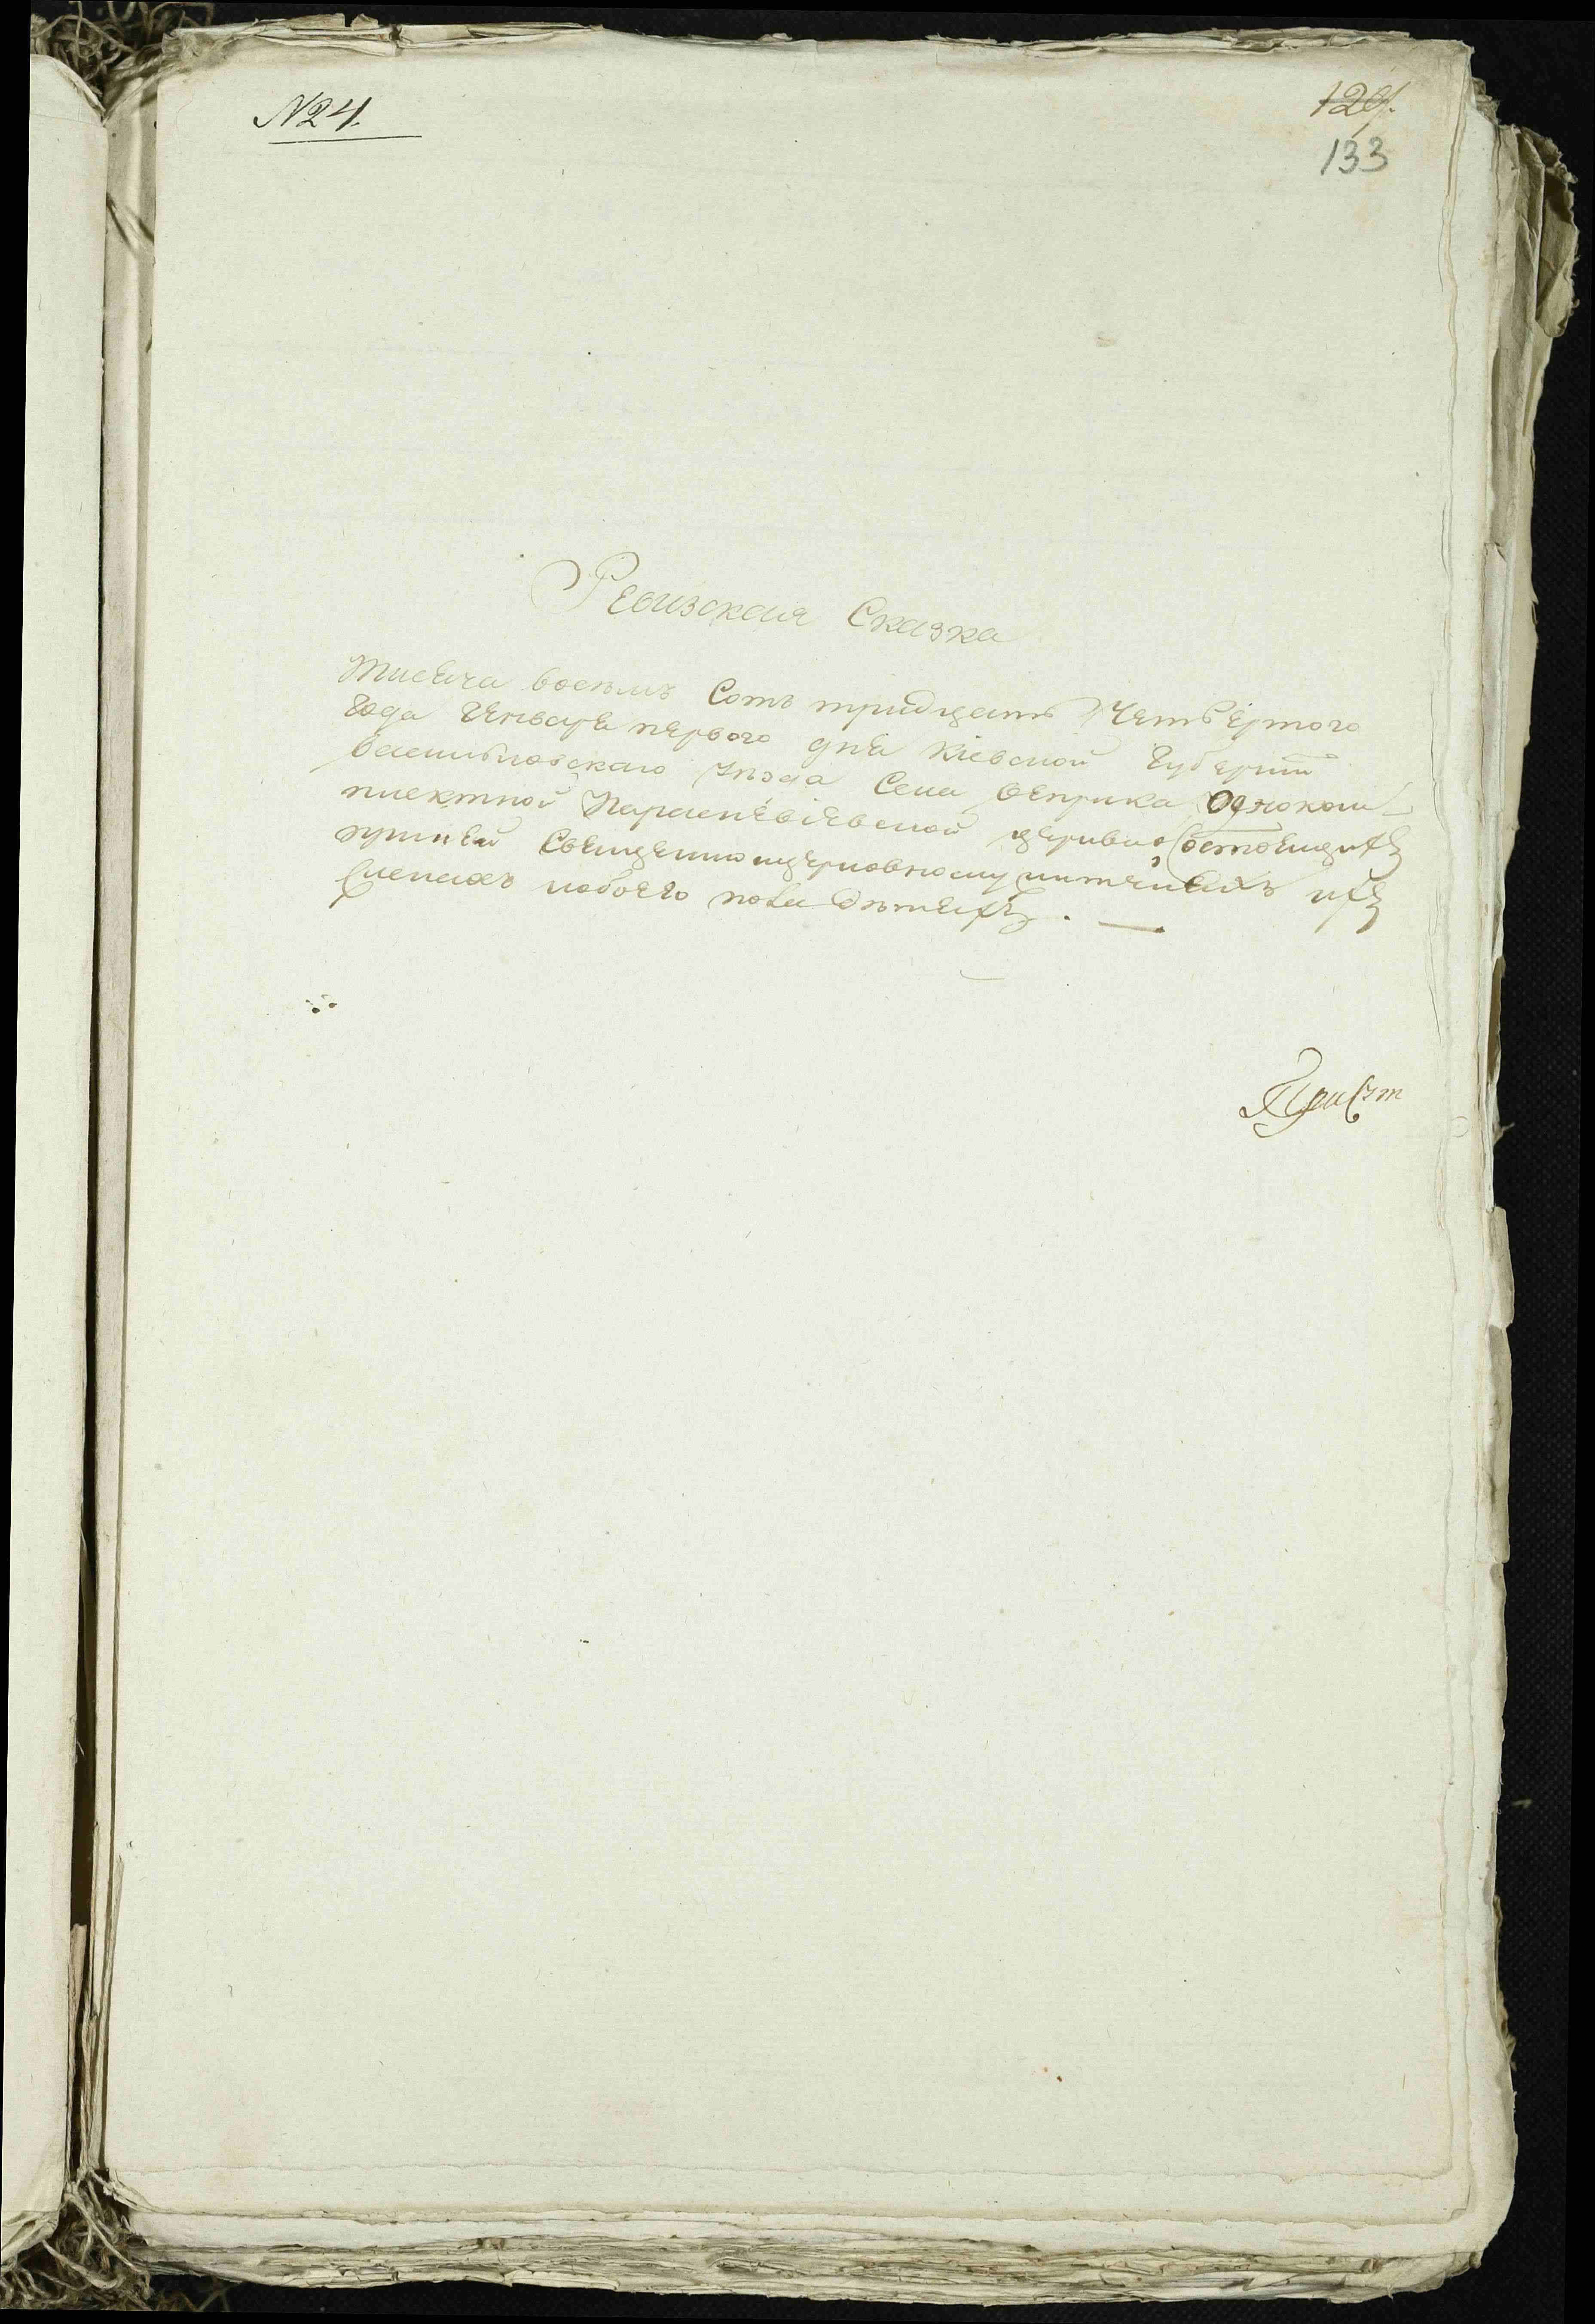 N24.
129.
133
Ревизская Сказка
Тисеча восемъ Сотъ тридцать Четвертого
года Генваря первого дня Кіевской Губерніи
Васильковскаго уезда Села Веприка Одноком-
плектной Параскевіевской церквио Состоещихъ
приней Священноцерковнослужителехъ ихъ
Сиенахъ иобоего пола Детехъ. —
Присут